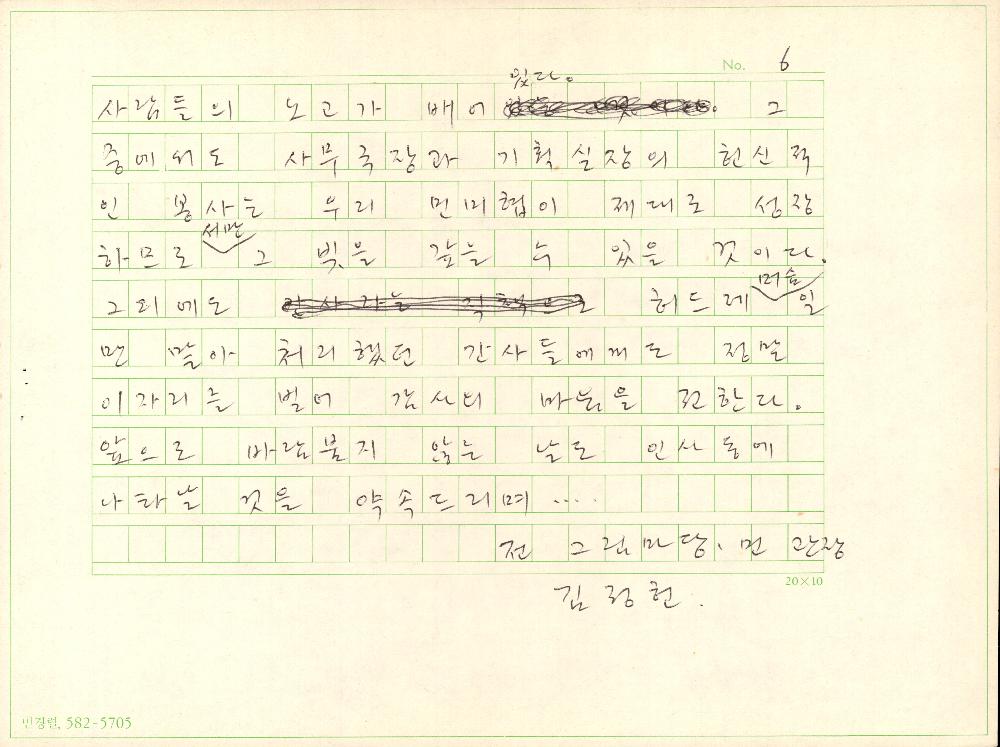 No. 6
있다.
사람들의 노고가 배어 그
중에서도 사무국장과 기획실장의 헌신적
인 봉사는 우리 민미협이 제대로 성장
세만
하므로 그 빚을 갚는 수 있을 것이다.
머슴
그외에도 간사라는 직책으로 허드레 일
만 맡아 처리했던 간사들에게도 정말
이자리를 빌어 감사의 마음을 전한다.
앞으로 바람불지 않는 날도 인사동에
나타날 것을 약속드리며 ....
전 그림마당·민 관장
20×10
김정헌.
민정렴, 582-5705